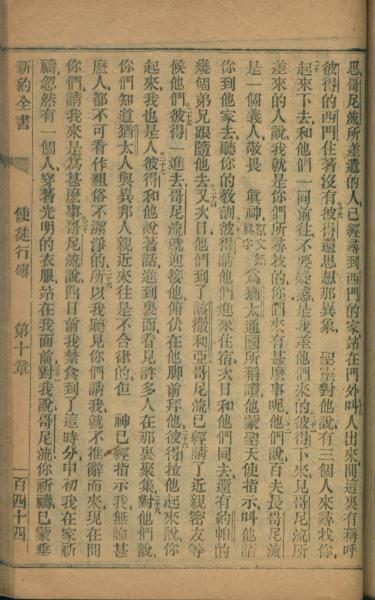 思哥尼流所差遣的人已經尋到西門的家站在門外叫人出來問這裏有稱呼
彼得的西門住著沒有彼得還思想那異象　聖靈對他說有三個人來尋找你
起來下去和他們一同前往不要疑惑是我差他們來的彼得下來見哥尼流所
差來的人說我就是你們所尋找的你們來有甚麽事呢他們說百夫長哥尼流
是一個義人敬畏　眞神原文無眞字爲猶太通國所稱讚他蒙聖天使指示叫他請
你到他家去聽你的教訓彼得請他們進來住宿次日和他們同去還有約帕的
幾個弟兄跟隨他去又次日他們到了該撒利亞哥尼流已經請了近親密友等
候他們彼得一進去哥尼流就迎接他俯伏在他脚前拜他彼得拉他起來說你
起來我也是人彼得和他說著話進到裏面看見許多人在那裏聚集對他們說
你們知道猶太人與異邦人親近來往是不合律的但　神已經指示我無論甚
麽人都不可看作粗俗不潔淨的所以我聽見你們請我就不推辭而來現在問
你們請我來是爲甚麽事哥尼流說四日前我禁食到了這時分申初我在家祈
禱忽然有一個人穿著光明的衣服站在我面前對我說哥尼流你祈禱已蒙垂
新約全書
使徒行傳
第十章
一百四十四